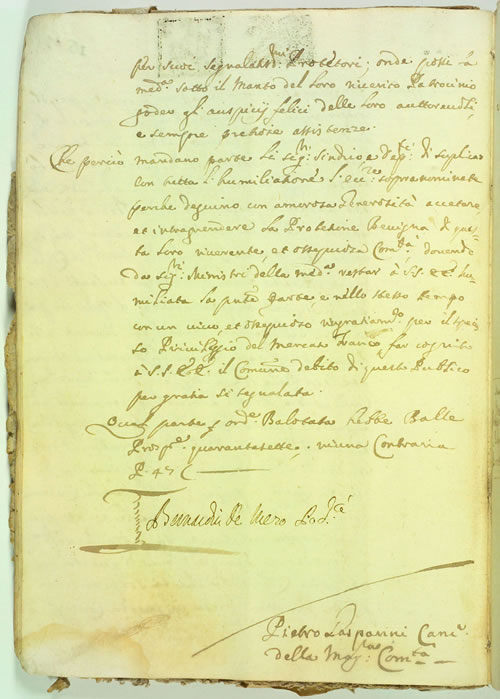 per suoi segnalatmi: Protetori; onde posi la
medma: sotto il Manto del Loro riverito Patrocinio
goder gl'auspicij felici delle Loro auttoreuoli,
e sempre pretiose assistenze.
Che perciò mandano parte Li sigri: Sindico e Depti: di suplicar
con tutta l'humiliatione S. ecc:ze sopranominate
perche degnino con amorosa Generosità accetare,
et intraprendere La Protetione Benigna di ques
ta Loro riverente, et ossequiosa Comtà: dovendo
da sigri: Ministri della medma restar à S.S. EE: hu-
miliata la pnte: Parte, e nello stesso tempo
con un vivo, et ossequioso ringratiamto per il
so Privileggio del Mercato franco far
à S.S. EE: il Comune debito di questo Publico
per gratia si segnalata.
Qual parte ordte Balotata hebbe Balle
Prospre quarantasette, niuna Contraria
P. 47
de
Pietro Gasparini Cancr
della Magca: Comtà